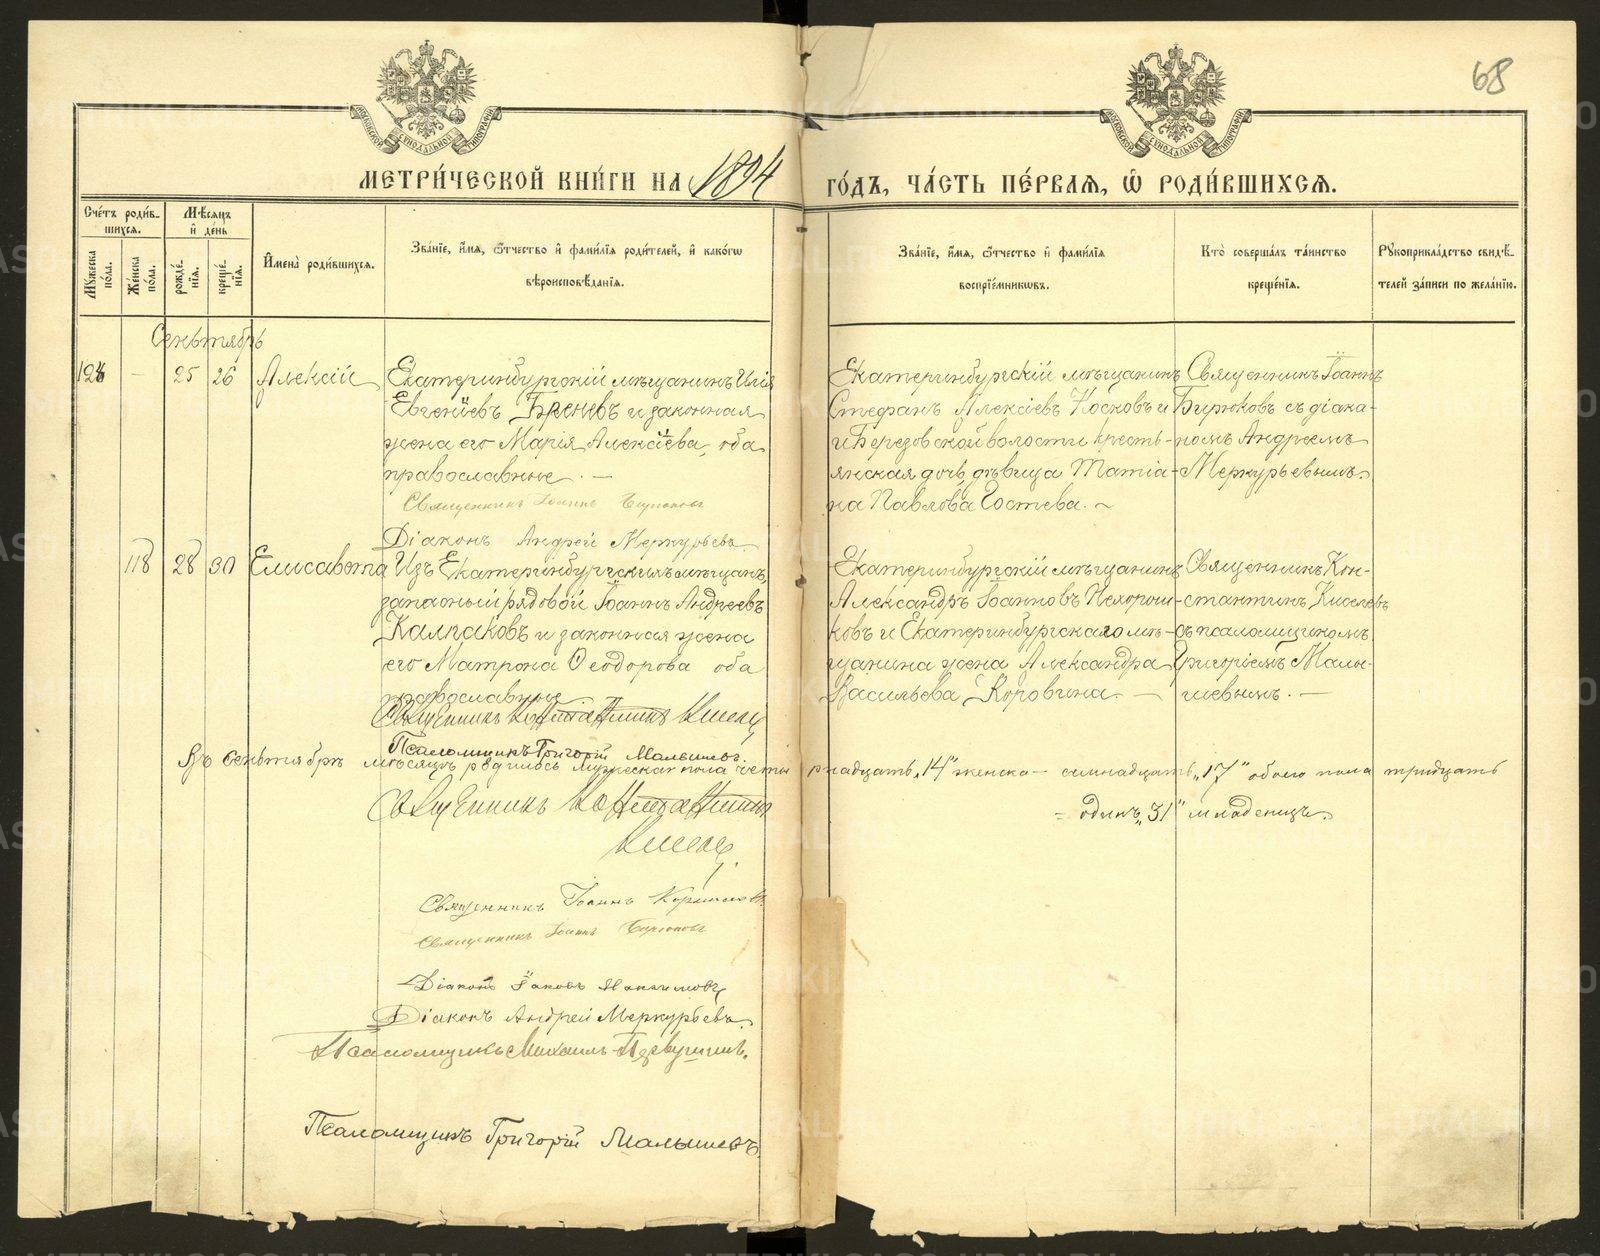 68
МОСКОВСКОЙ СѴНОДАЛЬНОЙ ТИПОГРАФІИ
МОСКОВСКОЙ СѴНОДАЛЬНОЙ ТИПОГРАФІИ
МЕТРИ́ЧЕСКОЙ КНИ́ГИ НА 1894 ГО́ДЪ, ЧА́СТЬ ПЕ́РВАѦ, Ѽ РОДИ́ВШИХСѦ.
Сче́тъ роди́в-
шихсѧ.
Мѣ́сѧцъ
и҆ де́нь
Мꙋ́жеска
по́ла.
Же́нска
по́ла.
рожде́-
нїѧ.
креще́-
нїѧ.
И҆мена̀ роди́вшихсѧ.
Зва́нїе, и҆́мѧ, ѻ҆́тчество и҆ фами́лїѧ роди́телей, и҆ како́гѡ
вѣроисповѣ́данїѧ.
Зва́нїе, и҆́мѧ, ѻ҆́тчество и҆ фами́лїѧ
воспрїе́мникѡвъ.
Кто̀ соверша́лъ та́инство
креще́нїѧ.
Рꙋкоприкла́дство свидѣ́-
телей за́писи по жела́нїю.
Сентябрь
128 — 25 26 Алексій
Екатеринбургскій мѣщанинъ Илія
Евгеніевъ Бреневъ и законная
жена его Марія Алексіева, оба
православные. —
Священникъ Іоаннъ Бирюковъ
Діаконъ Андрей Меркурьевъ
Екатеринбургскій мѣщанинъ
Стефанъ Алексіевъ Носковъ и
и Березовской волости кресть-
янская дочь, дѣвица Татіа-
на Павлова Гостева. ~
Священникъ Іоаннъ
Бирюковъ съ діако-
номъ Андреемъ
Меркурьевымъ.
118 28 30 Елисавета
Изъ Екатеринбургскихъ мѣщанъ,
запасный рядовой Іоаннъ Андреевъ
Калпаковъ и законная жена
его Матрона Ѳеодорова оба
православные
Священникъ Константинъ Киселевъ
Псаломщикъ Григорій Малышевъ.
Екатеринбургскій мѣщанинъ
Александръ Іоанновъ Нехорош-
ковъ и Екатеринбургскаго мѣ-
щанина жена Александра
Васильева Коровина. —
Священникъ Кон-
стантинъ Киселевъ
съ псаломщикомъ
Григоріемъ Малы-
шевымъ. —
Въ сентябрѣ мѣсяцѣ родилось мужескаго пола четырнадцать „14“ женска — семнадцать „17“ обоего пола тридцать
= одинъ „31“ младенецъ.
Священникъ Константинъ
Киселевъ
Священникъ Іоаннъ
Священникъ Іоаннъ Бирюковъ
Діаконъ Іаковъ Максимовъ
Діаконъ Андрей Меркурьевъ.
Псаломщикъ Михаилъ
Псаломщикъ Григорій Малышевъ.